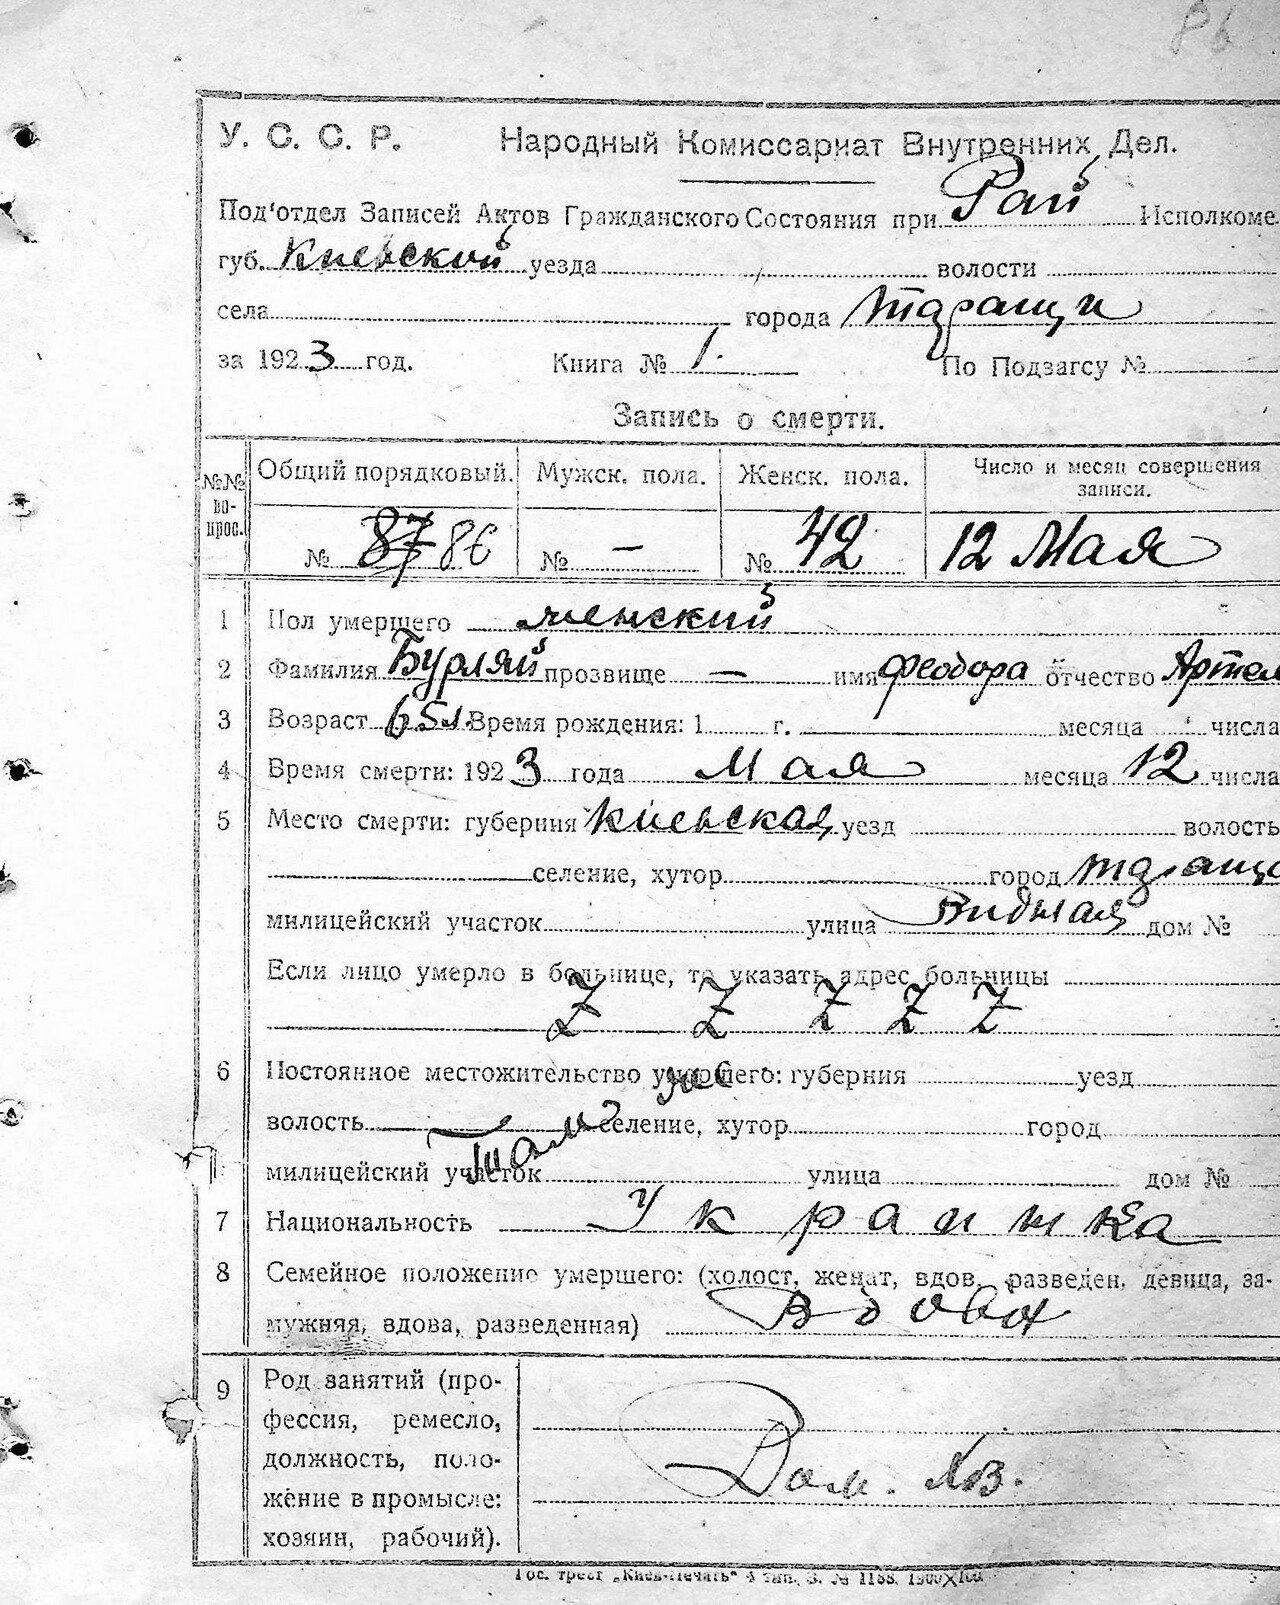 У. С. С. Р. Народный Комиссариат Внутренних Дел.
Под'отдел Записей Актов Гражданского Состояния при Рай Исполкоме
губ. Киевской уезда волости
села города
за 1923 год. Книга № 1. По Подзагсу №
Запись о смерти.
№№ вопрос. Общий порядковый. Мужск. пола. Женск. пола. Число и месяц совершения записи.
№ 87 86 № — № 42 12 Мая
1 Пол умершего женский
2 Фамилия Бурляй прозвище — имя Феодора отчество Артем
3 Возраст 65 л. Время рождения: 1 г. месяца числа
4 Время смерти: 1923 года Мая месяца 12 числа
5 Место смерти: губерния Киевская уезд волость
селение, хутор город
милицейский участок улица Видная дом №
Если лицо умерло в больнице, то указать адрес больницы
Z Z Z Z Z
6 Постоянное местожительство умершего: губерния уезд
волость Там же селение, хутор город
милицейский участок улица дом №
7 Национальность Украинка
8 Семейное положение умершего: (холост, женат, вдов, разведен, девица, за-
мужняя, вдова, разведенная) Вдова
9 Род занятий (про-
фессия, ремесло,
должность, поло-
жение в промысле:
хозяин, рабочий).
Дом. Хоз.
Гос. трест „Киев-Печать“ 4 тип. З. № 1188. 1900×100